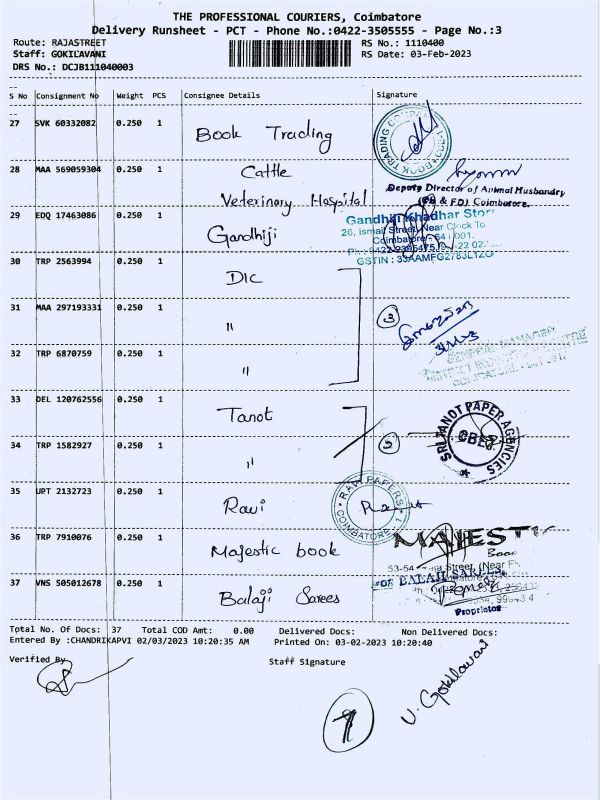 THE PROFESSIONAL COURIERS, Coimbatore
Delivery Runsheet - PCT - Phone No.:0422-3505555 - Page No.:3
Route: RAJASTREET RS No.: 1110400
Staff: GOKILAVANI RS Date: 03-Feb-2023
DRS No.: DCJB111040003
S No Consignment No Weight PCS Consignee Details Signature
27 SVK 60332082 0.250 1 Book Trading
BOOK TRADING COMPANY
28 MAA 569059304 0.250 1 Cattle
Veterinary Hospital
Deputy Director of Animal Husbandry
& F.D) Coimbatore.
29 EDQ 17463086 0.250 1 Gandhiji
Gandhiji Khadhar Store
26, Ismail Street, Near Clock To
Coimbatore - 641 001.
GSTIN : 33AAMFG2783L1ZO
30 TRP 2563994 0.250 1 DIC
31 MAA 297193331 0.250 1 "
3
32 TRP 6870759 0.250 1 "
GENERAL MANAGER
33 DEL 120762556 0.250 1 Tanot
34 TRP 1582927 0.250 1 "
SRI TANOT PAPER AGENCIES
CBE
35 UPT 2132723 0.250 1 Ravi
PAPERS
COIMBATORE - 1
36 TRP 7910076 0.250 1 Majestic book
MAJESTI
Book
53-54 Street, (Near
37 VNS 505012678 0.250 1 Balaji Sarees
For BALAJI SAREES,
Proprietor
Total No. Of Docs: 37 Total COD Amt: 0.00 Delivered Docs: Non Delivered Docs:
Entered By :CHANDRIKAPVI 02/03/2023 10:20:35 AM Printed On: 03-02-2023 10:20:40
Verified By Staff Signature
V. Gokilavani